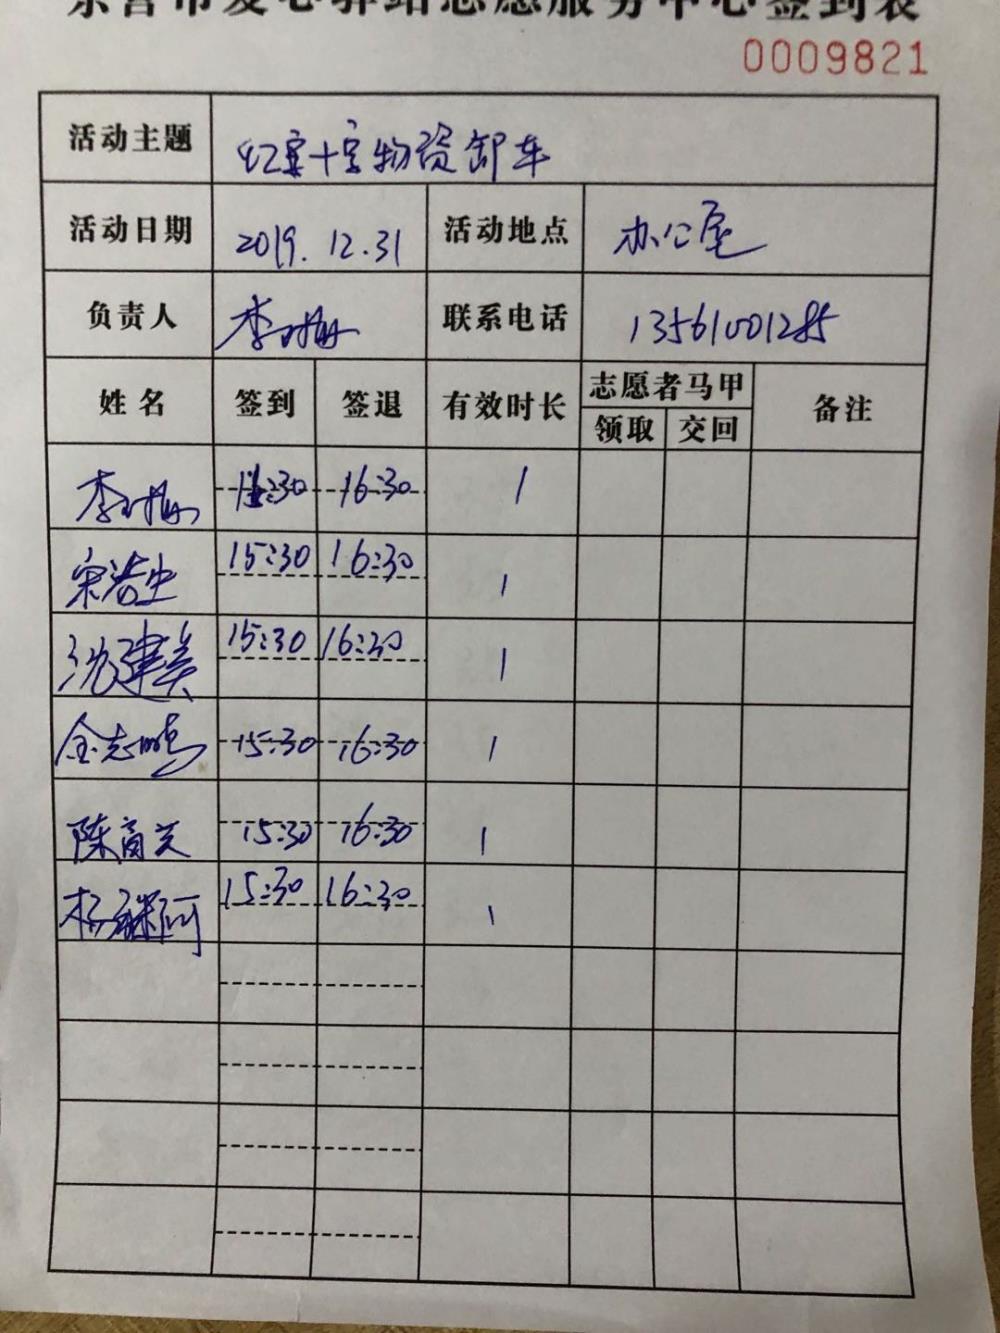 东营市爱心驿站志愿服务中心签到表
0009821
活动主题 红十字物资卸车
活动日期 2019.12.31 活动地点 办公室
负责人 联系电话 13561001285
姓名 签到 签退 有效时长 志愿者马甲 备注
领取 交回
15:30 16:30 1
15:30 16:30 1
沈建美 15:30 16:30 1
金志鹏 15:30 16:30 1
15:30 16:30 1
15:30 16:30 1